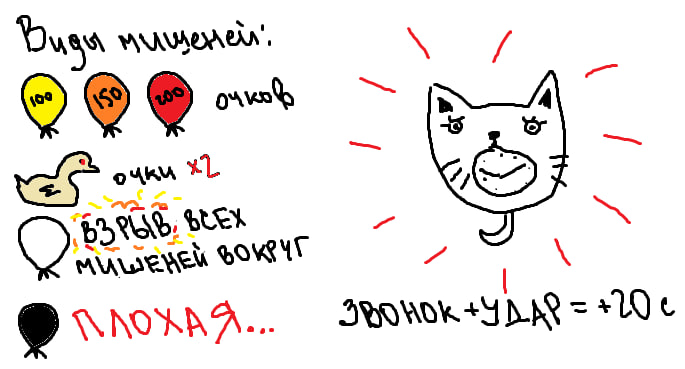 Виды мишеней:
100 150 200 очков
очки x2
ВЗРЫВ ВСЕХ
МИШЕНЕЙ ВОКРУГ
ПЛОХАЯ...
ЗВОНОК+УДАР=+20 с